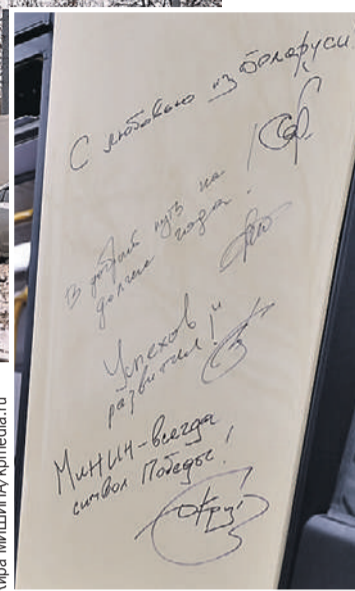 С любовью из Беларуси!
В добрый путь на
долгие года!
Успехов и
развития!
Минин – всегда
символ Победы!
Кира МИШИНА/kpmedia.ru